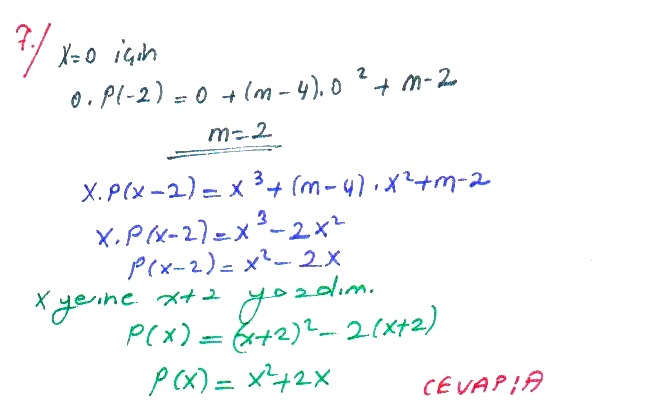 7./ x=0 için
0.P(-2) = 0 + (m-4).0² + m-2
m=2
x.P(x-2) = x³ + (m-4).x² + m-2
x.P(x-2) = x³ - 2x²
P(x-2) = x² - 2x
x yerine x+2 yazdım.
P(x) = (x+2)² - 2(x+2)
P(x) = x²+2x
CEVAP:A